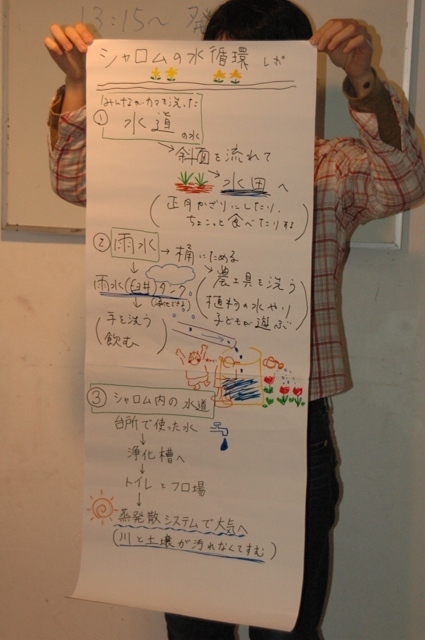 13:15〜 発
シャロムの水循環 レポ
みんながカマを洗った
① 水道の水
→斜面を流れて
→水田へ
(正月かざりにしたり、
ちょこっと食べたりする)
② 雨水→桶にためる
雨水(臼井)タンク
農工具を洗う
植物の水やり
子どもが遊ぶ
手を洗う
飲む
③ シャロム内の水道
台所で使った水
↓
浄化槽へ
↓
トイレとフロ場
↓
蒸発散システムで大気へ
(川と土壌が汚れなくてすむ)